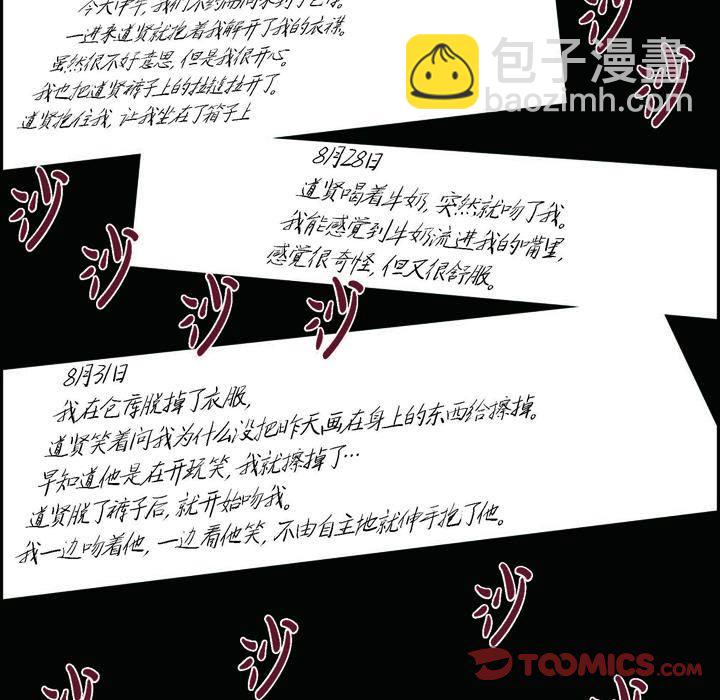 一进来道贤就抱着我解开了我的衣襟。
虽然很不好意思,但是我很开心。
我也把道贤裤子上的拉链拉开了。
道贤抱住我,让我坐在了箱子上
包子漫畫
baozimh.com
8月28日
道贤喝着牛奶,突然就吻了我。
我能感觉到牛奶流进我的嘴里,
感觉很奇怪,但又很舒服。
沙
沙
沙
沙
8月31日
我在仓库脱掉了衣服,
道贤笑着问我为什么没把昨天画在身上的东西给擦掉。
早知道他是在开玩笑,我就擦掉了…
道贤脱了裤子后,就开始吻我。
我一边吻着他,一边看他笑,不由自主地就伸手抱了他。
沙
沙
沙
TOOMICS.COM